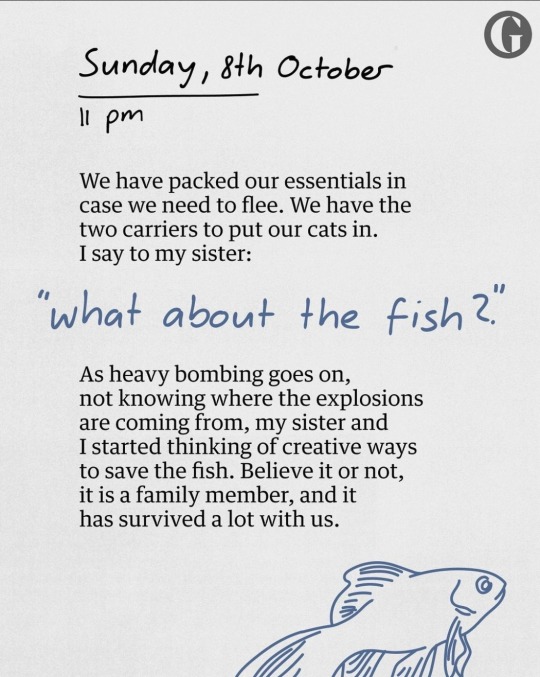 G
Sunday, 8th October
11 pm
We have packed our essentials in
case we need to flee. We have the
two carriers to put our cats in.
I say to my sister:
"what about the fish?"
As heavy bombing goes on,
not knowing where the explosions
are coming from, my sister and
I started thinking of creative ways
to save the fish. Believe it or not,
it is a family member, and it
has survived a lot with us.